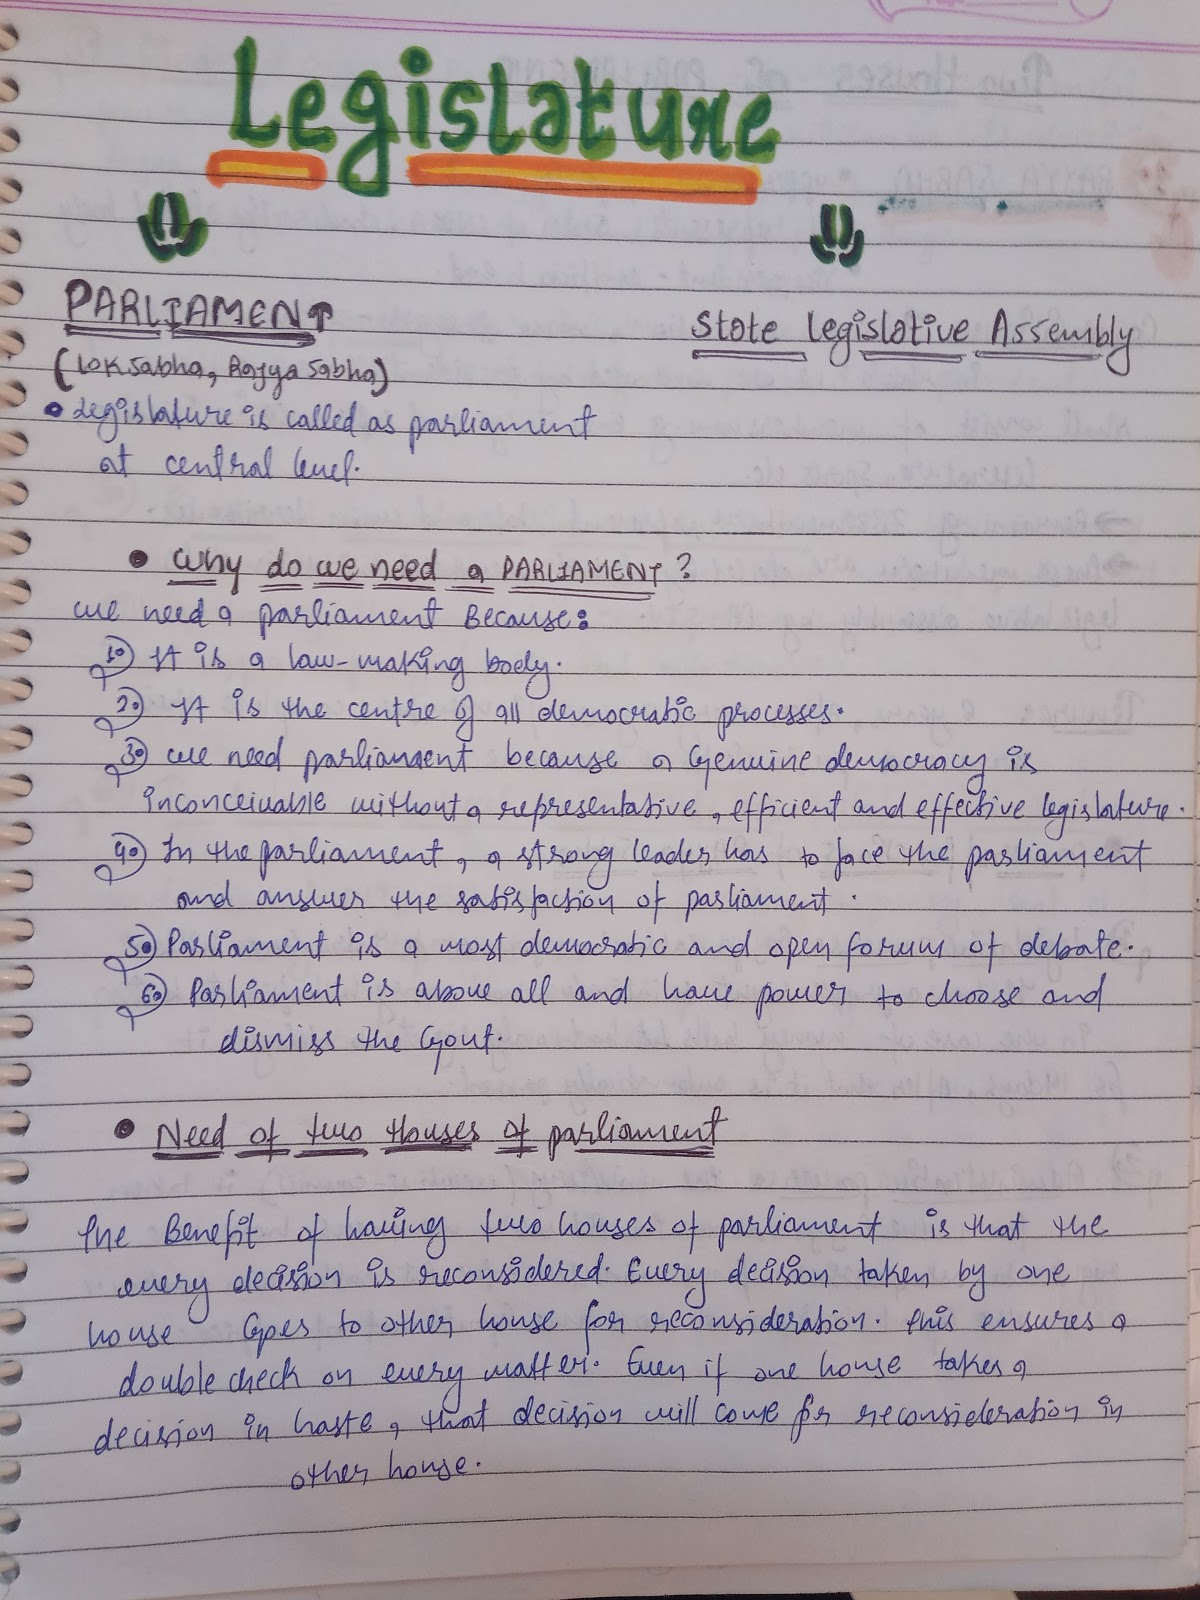 Legislature
PARLIAMENT
State legislative Assembly
(Lok sabha, Rajya sabha)
• Legislature is called as parliament
at central level.
• Why do we need a PARLIAMENT?
we need a parliament Because:
1) It is a law-making body.
2) It is the centre of all democratic processes.
3) we need parliament because a Genuine democracy is
inconceivable without a representative, efficient and effective legislature.
4) In the parliament, a strong leader has to face the parliament
and answer the satisfaction of parliament.
5) Parliament is a most democratic and open forum of debate.
6) Parliament is above all and have power to choose and
dismiss the Govt.
• Need of two Houses of parliament
The Benefit of having two houses of parliament is that the
every decision is reconsidered. Every decision taken by one
house Goes to other house for reconsideration. This ensures a
double check on every matter. Even if one house takes a
decision in haste, that decision will come for reconsideration in
other house.